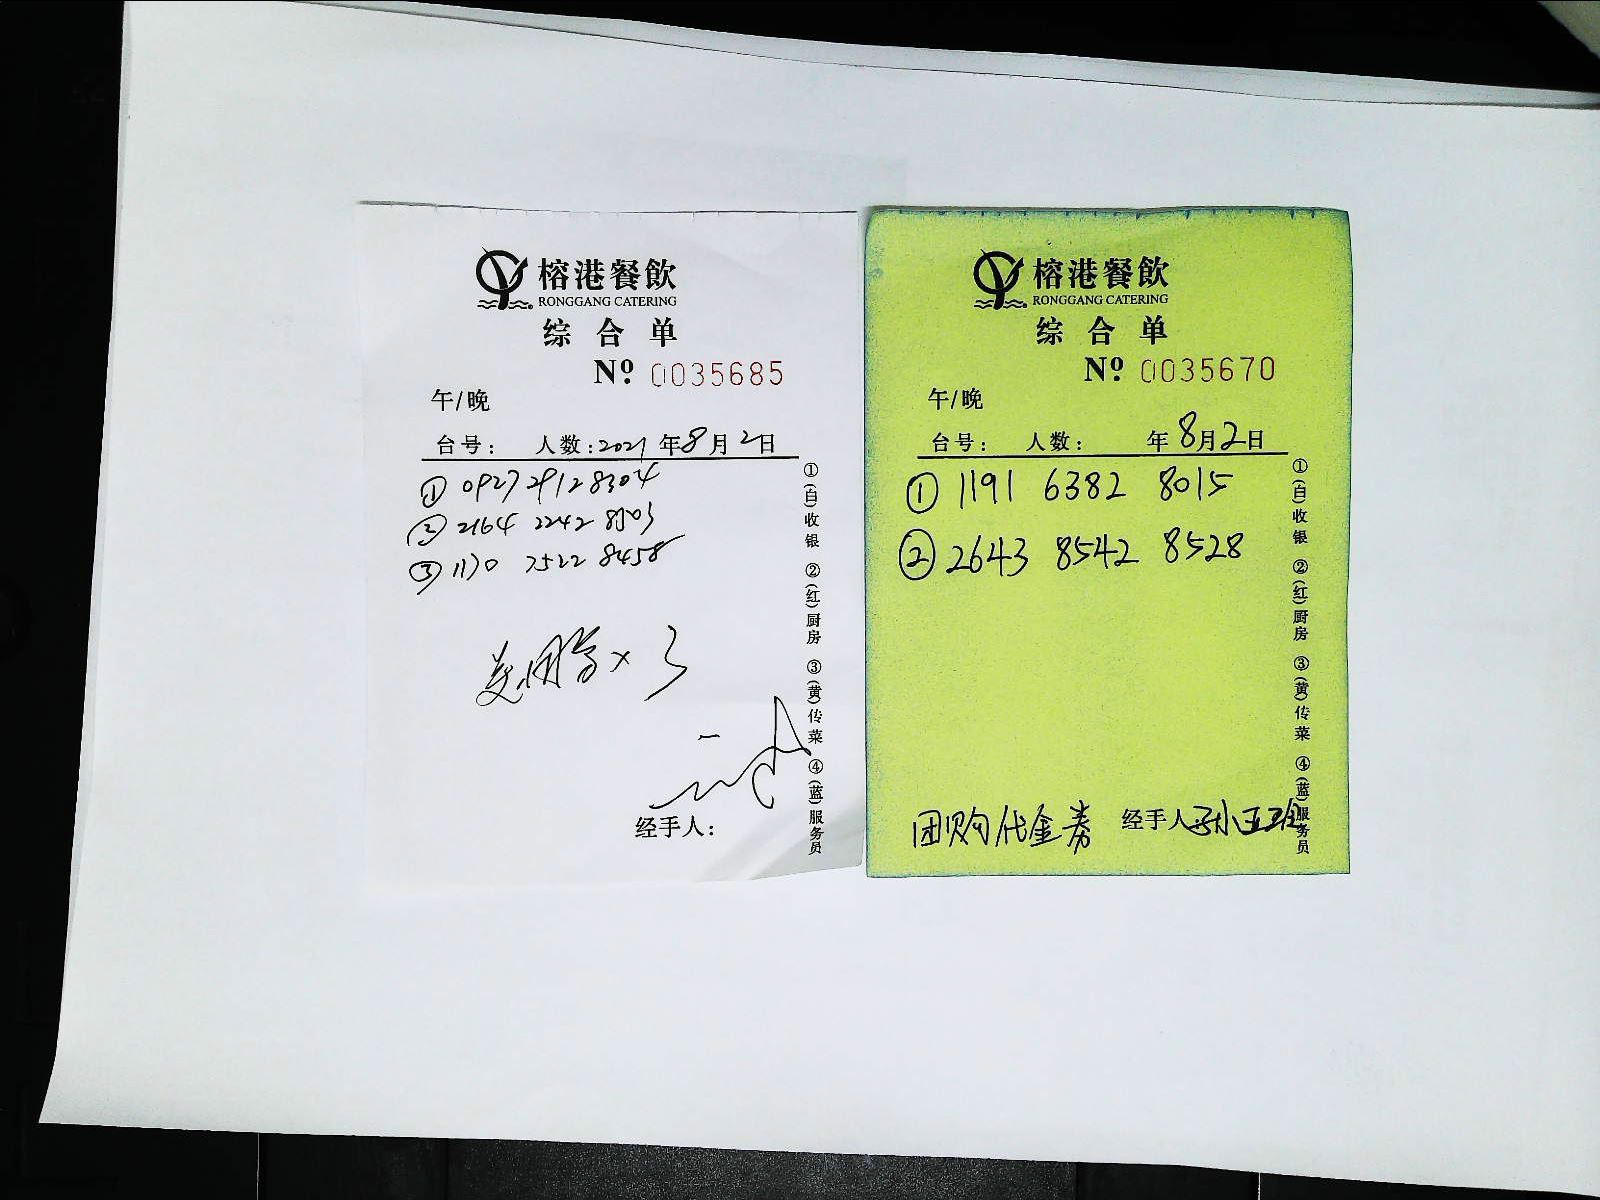 榕港餐飲
RONGGANG CATERING
综合单
Nº. 0035685
午/晚
台号： 人数：2021 年8月2日
① 0927 2912 8304
② 2164 2242 8503
③ 1170 7522 8458
美团券×3
经手人：
①(白)收银 ②(红)厨房 ③(黄)传菜 ④(蓝)服务员
榕港餐飲
RONGGANG CATERING
综合单
Nº. 0035670
午/晚
台号： 人数： 年8月2日
① 1191 6382 8015
② 2643 8542 8528
团购代金券 经手人
①(白)收银 ②(红)厨房 ③(黄)传菜 ④(蓝)服务员